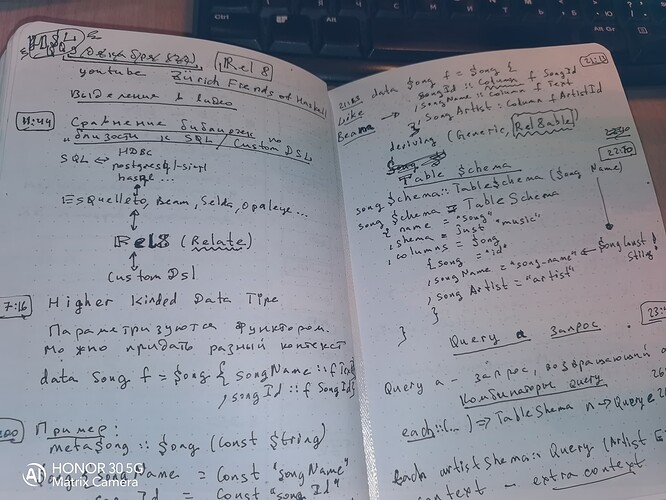 Rel 8
youtube Zürich Friends of Haskell
Выделения в видео
11:44
Сравнение библиотек по
"близости к SQL / Custom DSL
SQL ↔ HDBC
postgresql-simpl
hasql ...
Esquelleto, Beam, Selda, Opaleye...
Rel8 (Relate)
Custom Dsl
7:16 Higher Kinded Data Tipe
Параметризуются функтором.
Можно придать разный контекст
data Song f = Song { songName :: f Text
, songId :: f SongId}
Пример:
metaSong :: Song (Const String)
Song Name = Const "songName"
Id = Const "song Id"
21:18
data Song f = Song {
Like songId :: Column f SongId
Beam → , songName :: Column f Text
, song Artist :: Column f ArtistId
} deriving (Generic, Rel8able)
22:10
Table Schema
song Schema :: TableSchema (Song Name)
song Schema = Table Schema
{ name = "song"
, schema = Just "music"
, columns = Song
{ song = "id"
, songName = "song-name" ← Song Const
String
, song Artist = "artist"
}
}
Query a запрос
Query a - запрос, возвращающий
Комбинаторы Query
each :: (...) => TableShema n → Query e
Each artistShema :: Query (Artist E
context - extra context
HONOR 30 5G
Matrix Camera
AI
Ctrl
Alt
Alt Gr